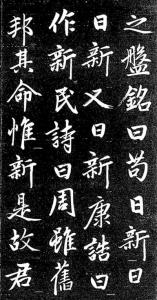 之盤銘曰苟日新日
日新又日新康誥曰
作新民詩曰周雖舊
邦其命惟新是故君